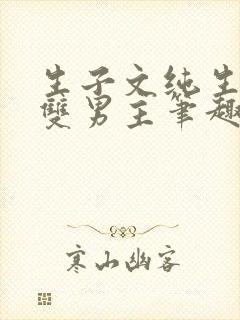 生子文纯生
雙男主筆趣
寒山幽客